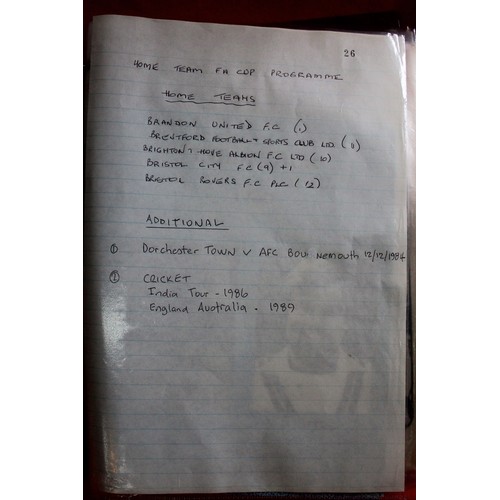 26
HOME TEAM FA CUP PROGRAMME
HOME TEAMS
BRANDON UNITED F.C (1)
BRENTFORD FOOTBALL & SPORTS CLUB LTD (11)
BRIGHTON & HOVE ALBION F C LTD (10)
BRISTOL CITY F C (9) + 1
BRISTOL ROVERS F C PLC (12)
ADDITIONAL
① Dorchester TOWN V AFC Bournemouth 12/12/1984
② CRICKET
India Tour - 1986
England Australia - 1989